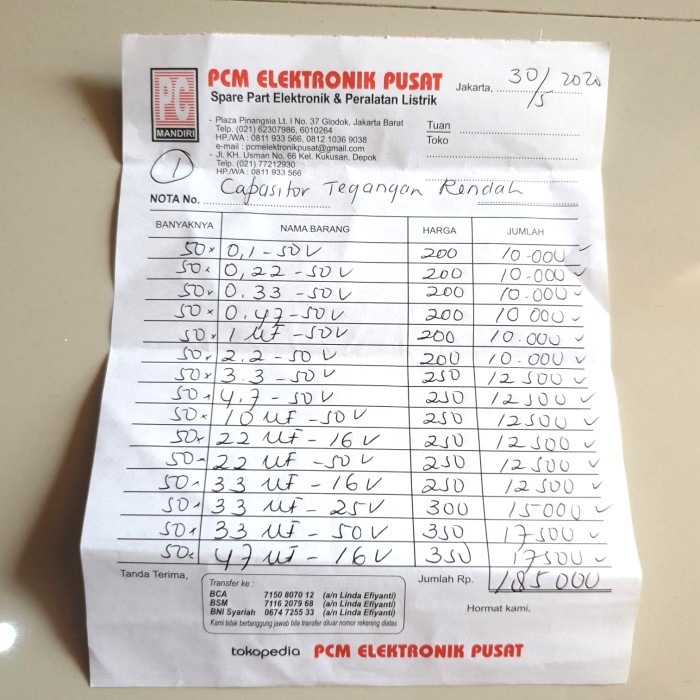 PC
MANDIRI
PCM ELEKTRONIK PUSAT
Spare Part Elektronik & Peralatan Listrik
- Plaza Pinangsia Lt. I No. 37 Glodok, Jakarta Barat
Telp. (021) 62307986, 6010264
HP./WA : 0811 933 566, 0812 1036 9038
e-mail : pcmelektronikpusat@gmail.com
- Jl. KH. Usman No. 66 Kel. Kukusan, Depok
Telp. (021) 77212930
HP./WA : 0811 933 566
Jakarta, 30/5 2020
Tuan
Toko
1
NOTA No. Capasitor Tegangan Rendah
BANYAKNYA NAMA BARANG HARGA JUMLAH
50 x 0,1 - 50 V 200 10.000 ✓
50 x 0,22 - 50 V 200 10.000 ✓
50 x 0.33 - 50 V 200 10.000 ✓
50 x 0.47 - 50 V 200 10 000 ✓
50 x 1 uf - 50 V 200 10.000 ✓
50 x 2.2 - 50 V 200 10.000 ✓
50 x 3.3 - 50 V 250 12 500 ✓
50 x 4.7 - 50 V 250 12 500 ✓
50 x 10 uf - 50 V 250 12500 ✓
50 x 22 uf - 16 V 250 12 500 ✓
50 x 22 uf - 50 V 250 12 500 ✓
50 x 33 uf - 16 V 250 12 500 ✓
50 x 33 uf - 25 V 300 15000 ✓
50 x 33 uf - 50 V 350 17500 ✓
50 x 47 uf - 16 V 350 17500 ✓
Tanda Terima, Jumlah Rp. 185 000
Transfer ke :
BCA 7150 8070 12 (a/n Linda Efiyanti)
BSM 7116 2079 68 (a/n Linda Efiyanti)
BNI Syariah 0674 7255 33 (a/n Linda Efiyanti)
Kami tidak bertanggung jawab bila transfer diluar nomor rekening diatas
Hormat kami,
tokopedia PCM ELEKTRONIK PUSAT